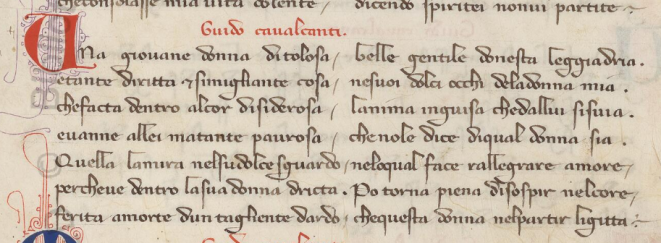 chetonsolasse mia vita dolente, dicendo spiritei nonui partite
Guido caualcanti.
Una giouane donna ditolosa, belle gentile donesta leggiadria.
etante diritta ⁊ simigliante cosa, nesuoi dolci occhi deladonna mia.
chefacta dentro alcor disiderosa, lanima inguisa chedallui sisuia.
euanne allei matante paurosa, chenole dice diqual donna sia.
Quella lamira nelsudolce sguardo, neloqual face rallegrare amore,
percheue dentro lasua donna dricta. Po torna piena disospir nelcore,
ferita amorte dun tagliente dardo, chequesta donna nelpartir ligitta